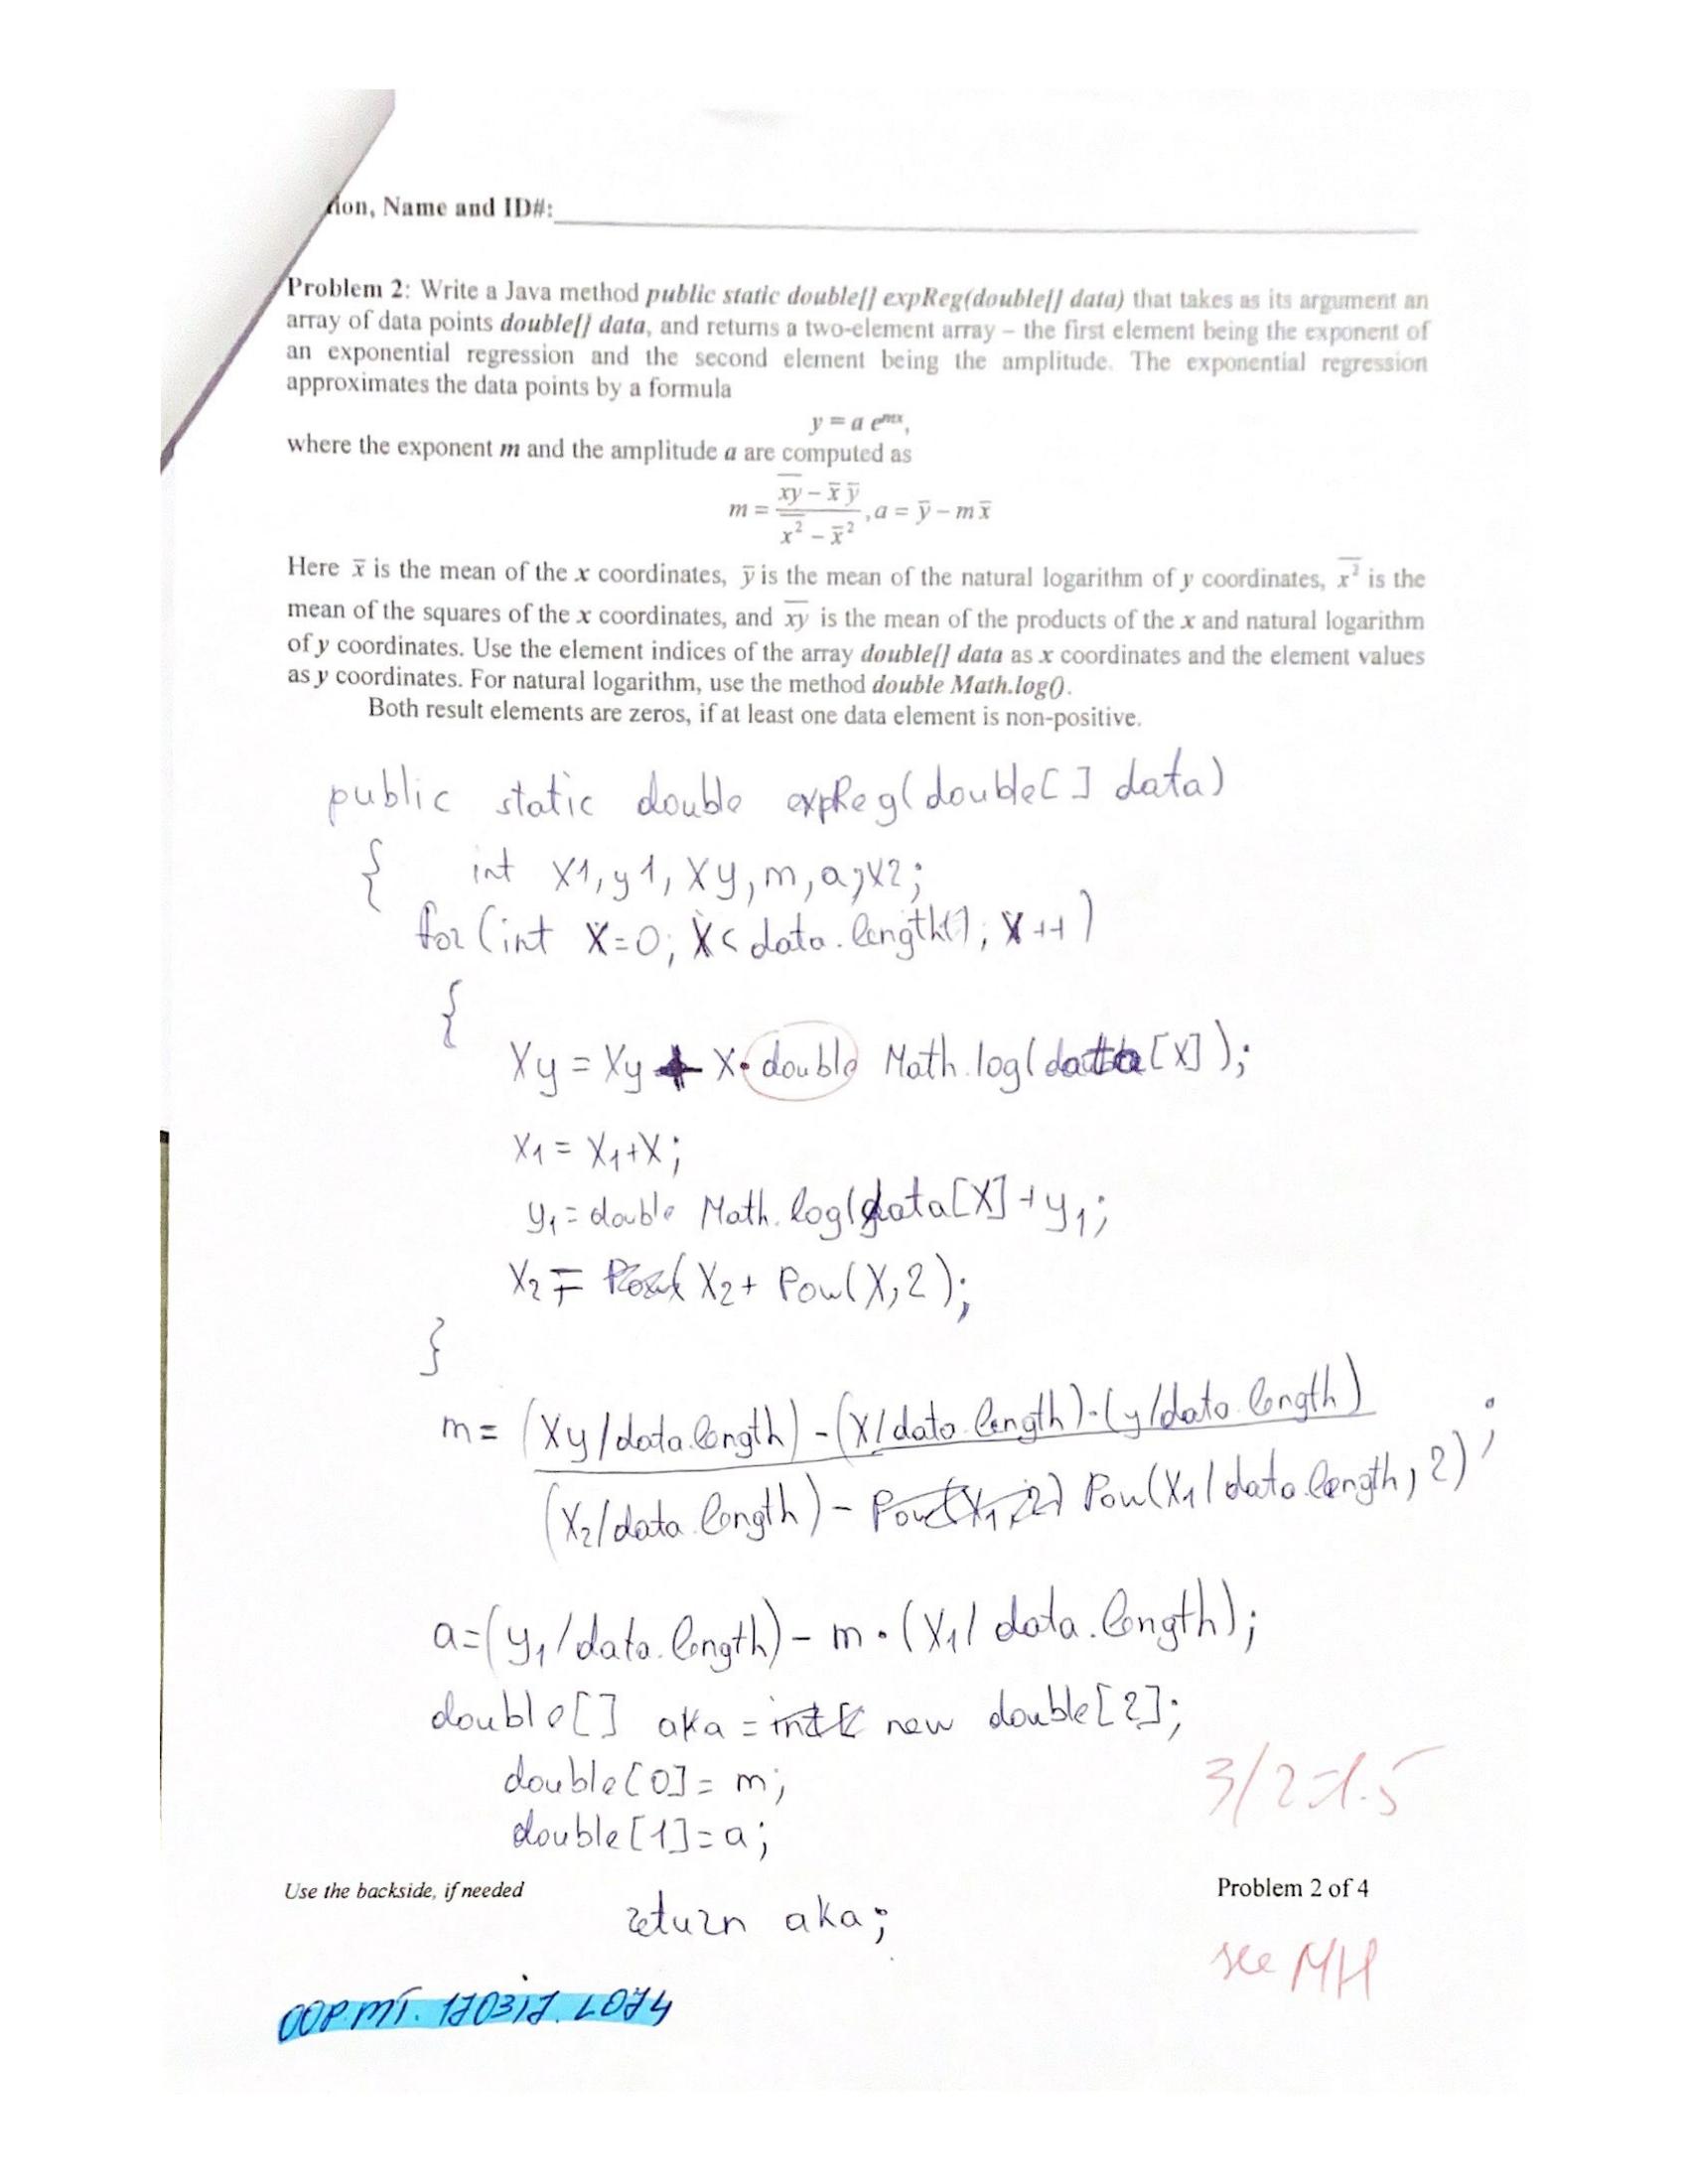 ion, Name and ID#:
Problem 2: Write a Java method public static double[] expReg(double[] data) that takes as its argument an
array of data points double[] data, and returns a two-element array – the first element being the exponent of
an exponential regression and the second element being the amplitude. The exponential regression
approximates the data points by a formula
y = a e^{mx},
where the exponent m and the amplitude a are computed as
m = \frac{\overline{xy} - \bar{x}\,\bar{y}}{\overline{x^2} - \bar{x}^2}, a = \bar{y} - m\bar{x}
Here x̄ is the mean of the x coordinates, ȳ is the mean of the natural logarithm of y coordinates, \overline{x^2} is the
mean of the squares of the x coordinates, and \overline{xy} is the mean of the products of the x and natural logarithm
of y coordinates. Use the element indices of the array double[] data as x coordinates and the element values
as y coordinates. For natural logarithm, use the method double Math.log().
Both result elements are zeros, if at least one data element is non-positive.
public static double expReg(double[] data)
{ int x1, y1, xy, m, a, x2;
for (int x=0; x< data.length(); x++)
{
xy = xy + x· double Math.log(data[x]);
x1 = x1+x;
y1 = double Math.log(data[x]+y1;
x2 = x2+ Pow(x,2);
}
m = (xy/data.length) - (x/data.length)·(y/data.length)
(x2/data.length) - Pow(x1/data.length, 2) ;
a=(y1/data.length) - m·(x1/data.length);
double[] aka = new double[2];
double[0] = m;
double[1]=a;
3/2=1.5
Use the backside, if needed
Problem 2 of 4
return aka;
see MH
OOP.MT. 170317. L074